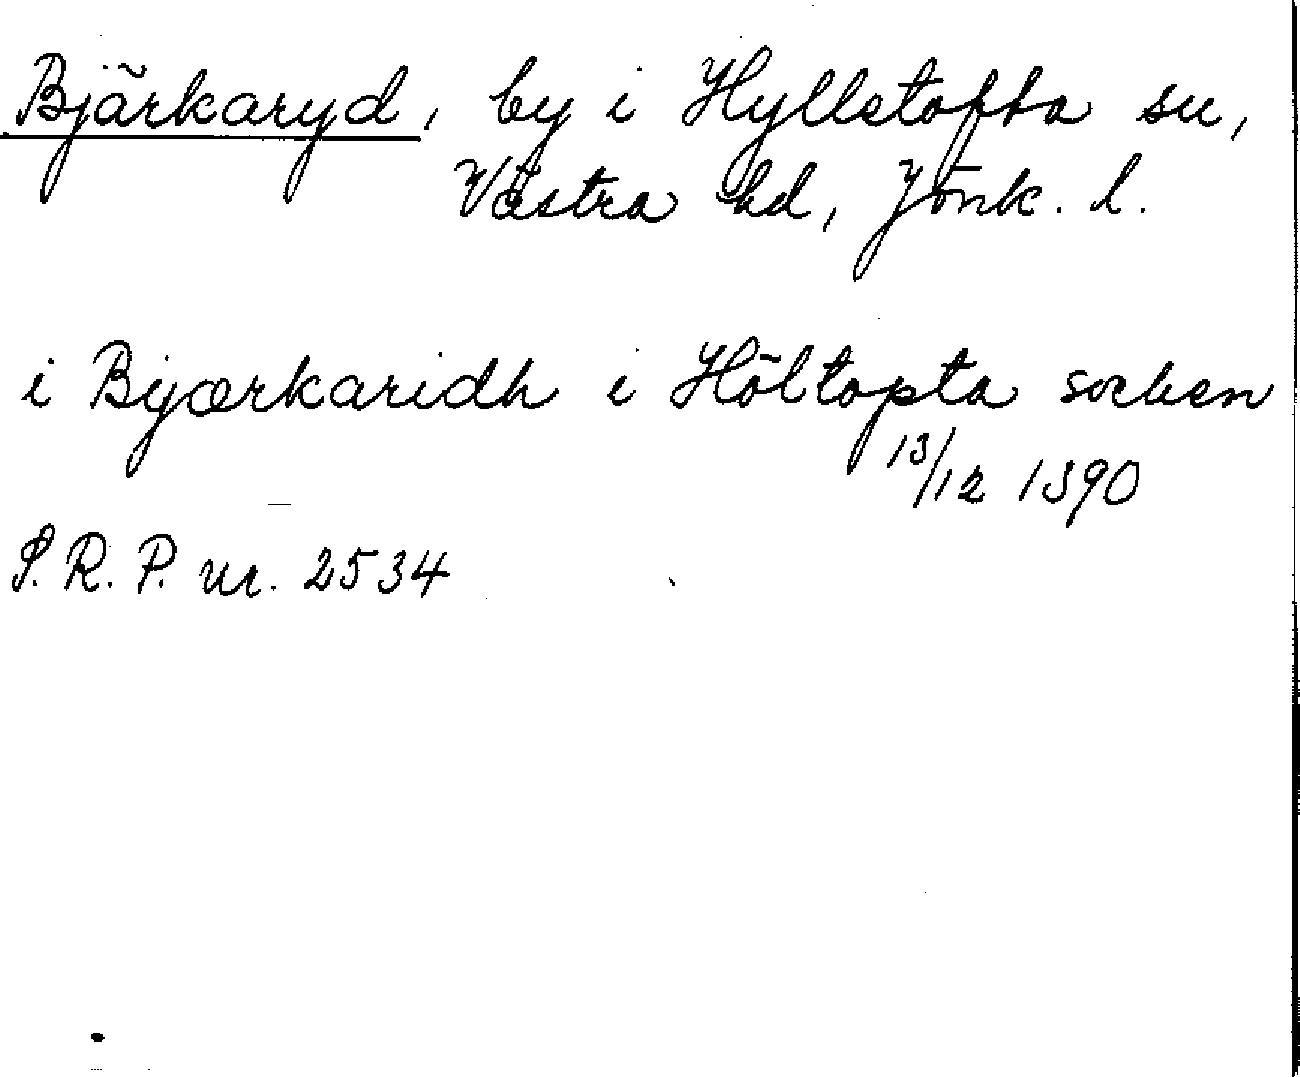 Bjärkaryd, by i Hyllstofta sn,
Västra hd, Jönk. l.
i Byærkaridh i Höltopta socken
13/12 1390
S. R. P. nr. 2534